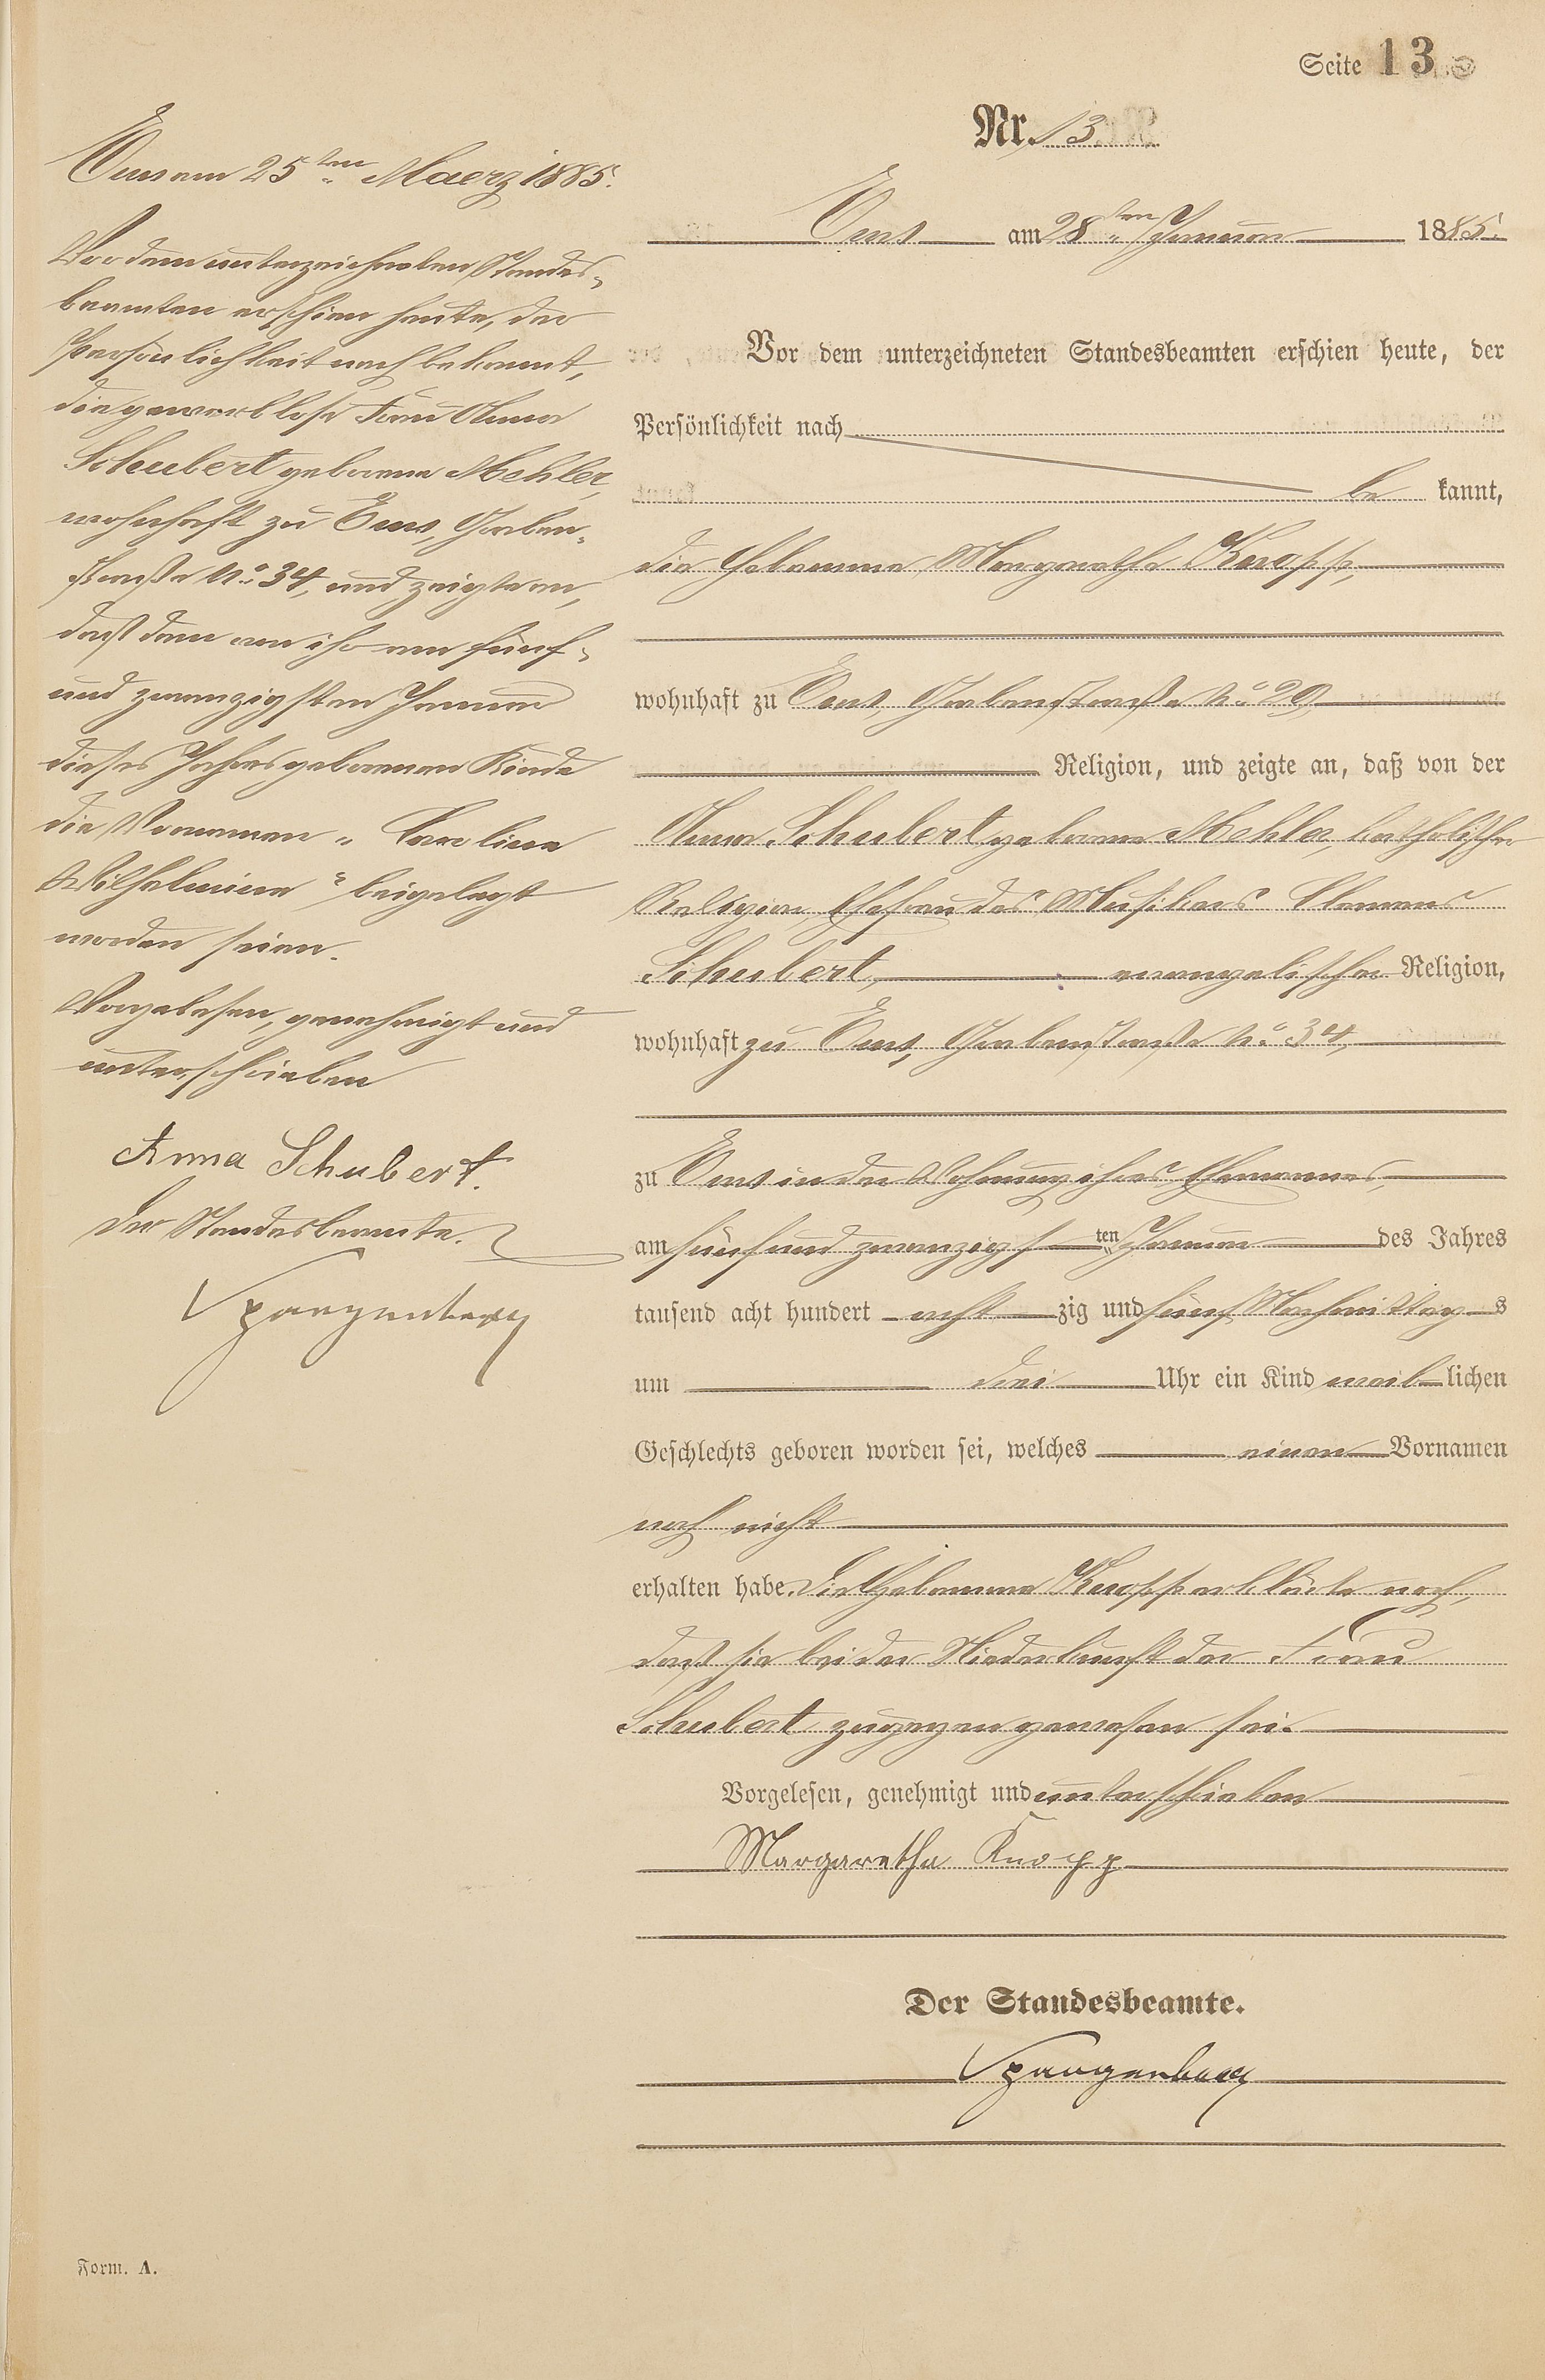 Seite 13
Nr. 13.
Ems am 28ten Januar 1885.
Vor dem unterzeichneten Standesbeamten erschien heute, der
Persönlichkeit nach
be kannt,
die Hebamme Margarethe Knopp,
wohnhaft zu Ems, Grabenstraße No 29,
Religion, und zeigte an, daß von der
Anna Schubert geborene Mehler, katholischer
Religion, Ehefrau des Musikers Clemens
Schubert, evangelischer Religion,
wohnhaft zu Ems, Grabenstraße No 34,
zu Ems in der Wohnung ihres Ehemannes,
am fünf und zwanzigsten Januar des Jahres
tausend acht hundert acht zig und fünf Nachmittags
um drei Uhr ein Kind weiblichen
Geschlechts geboren worden sei, welches einen Vornamen
noch nicht
erhalten habe. Die Hebamme Knopp erklärte noch,
daß sie bei der Niederkunft der Frau
Schubert zugegen gewesen sei.
Vorgelesen, genehmigt und unterschrieben
Margaretha Knopp
Der Standesbeamte.
Spangenberg
Ems am 25ten Maerz 1885.
Vor dem unterzeichneten Standes-
beamten erschien heute, der
Persönlichkeit nach bekannt,
die gewerblose Frau Anna
Schubert geborene Mehler,
wohnhaft zu Ems, Graben-
straße No 34, und zeigte an,
daß dem von ihr am fünf-
und zwanzigsten Januar
dieses Jahres geborenen Kinde
die Vornamen „Caroline
Wilhelmine“ beigelegt
worden seien.
Vorgelesen, genehmigt und
unterschrieben
Anna Schubert.
Der Standesbeamte.
Spangenberg
Form. A.